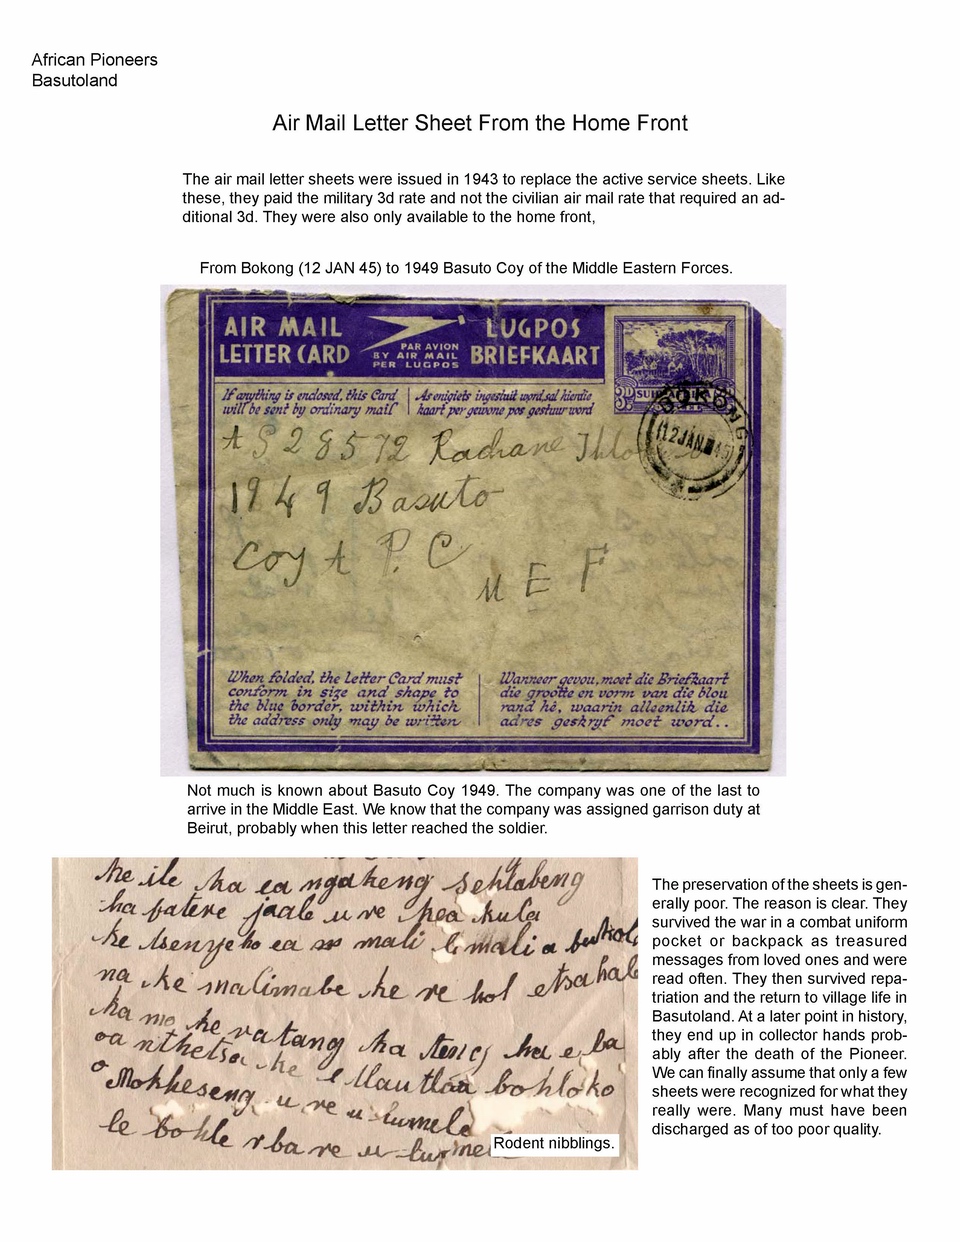 African Pioneers
Basutoland
Air Mail Letter Sheet From the Home Front
The air mail letter sheets were issued in 1943 to replace the active service sheets. Like
these, they paid the military 3d rate and not the civilian air mail rate that required an ad-
ditional 3d. They were also only available to the home front,
From Bokong (12 JAN 45) to 1949 Basuto Coy of the Middle Eastern Forces.
AIR MAIL
LETTER CARD
PAR AVION
BY AIR MAIL
PER LUGPOS
LUGPOS
BRIEFKAART
If anything is enclosed, this Card
will be sent by ordinary mail
As enigiets ingesluit word, sal hierdie
kaart per gewone pos gestuur word
3D
BOKONG
12 JAN 45
A S 28572 Radiane
1949 Basuto
Coy A P. C
M E F
When folded, the Letter Card must
conform in size and shape to
the blue border, within which
the address only may be written
Wanneer gevou, moet die Briefkaart
die grootte en vorm van die blou
rand hê, waarin alleenlik die
adres geskryf moet word..
Not much is known about Basuto Coy 1949. The company was one of the last to
arrive in the Middle East. We know that the company was assigned garrison duty at
Beirut, probably when this letter reached the soldier.
ke ile ka ea ngakeng sehlabeng
ka fatere jaale u re
ke mali
na ke re
ka mo ke ratang ka
ke bohloko
u re u lumele
le bohle
Rodent nibblings.
The preservation of the sheets is gen-
erally poor. The reason is clear. They
survived the war in a combat uniform
pocket or backpack as treasured
messages from loved ones and were
read often. They then survived repa-
triation and the return to village life in
Basutoland. At a later point in history,
they end up in collector hands prob-
ably after the death of the Pioneer.
We can finally assume that only a few
sheets were recognized for what they
really were. Many must have been
discharged as of too poor quality.